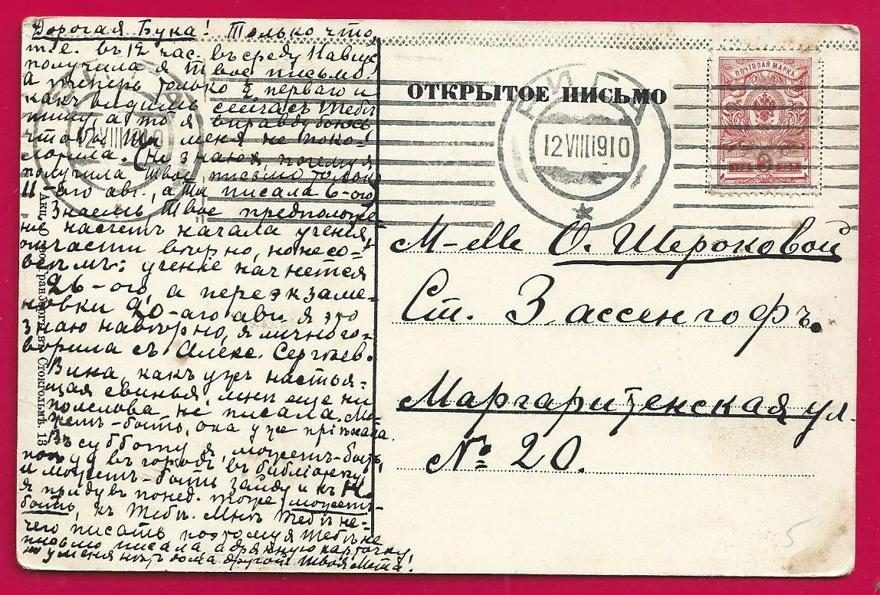 Дорогая Бука! Только что
т.е. въ 12 час. въ среду
получила я твое письмо,
а теперь только перваго и
какъ видишь сейчасъ тебѣ
пишу, а то я вправду боюсь
чтобы ты меня не поко-
лотила. (Не знаю почему я
получила твое письмо только
11-ого авг., а ты писала 6-ого
Знаешь твое предположе-
нiе насчетъ начала ученiя,
отчасти вѣрно, но не со-
всѣмъ: ученье начнется
26-ого, а переэкзаме-
новки 20-аго авг. я это
знаю навѣрно, я лично го-
ворила съ Алекс. Сергѣев.
Вина, какъ ужъ настоя-
щая свинья, мнѣ еще ни
полслова не писала. Мо-
жетъ-быть, она уже прiѣхала.
Въ субботу я, можетъ-быть,
поѣду въ городъ въ библiотеку
и можетъ-быть зайду и къ
я приду въ понед. тоже можетъ-
быть, къ тебѣ. Мнѣ тебѣ не-
чего писать поэтому я тебѣ не
письмо писала а дрянную карточку,
у меня нѣтъ дома другой Твоя Мета!
ОТКРЫТОЕ ПИСЬМО
РИГА
12 VIII 1910
ПОЧТОВАЯ МАРКА
М-llе О. Шероковой
Ст. Зассенгофъ.
Маргаритенская ул.
№ 20.
5